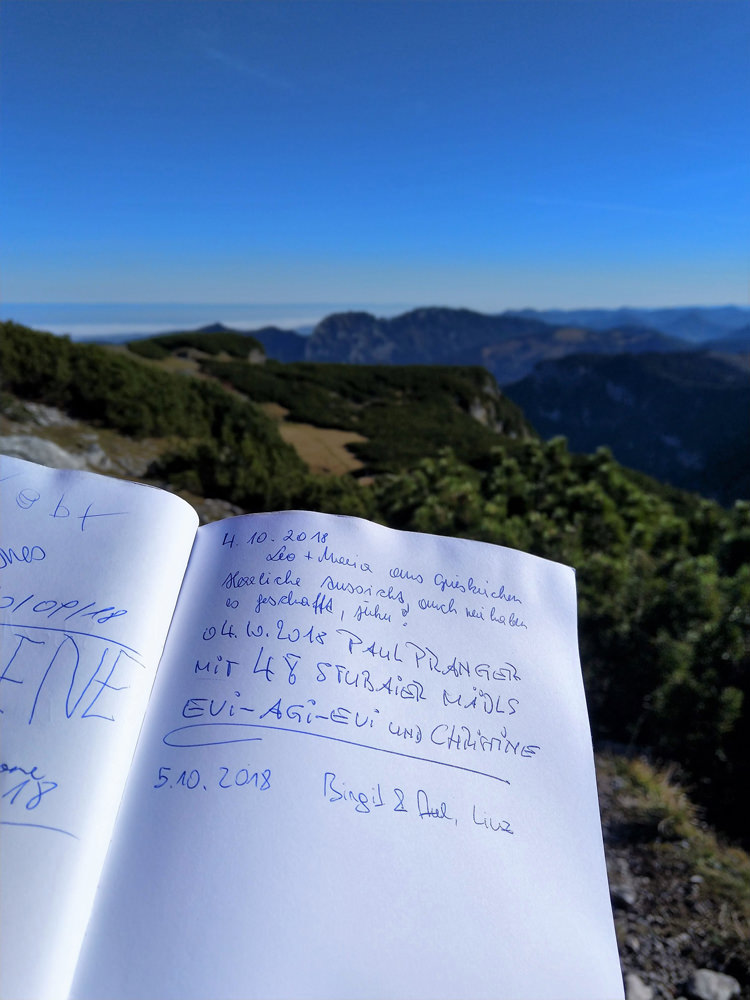 ebt
/09/18
INE
one
18
4.10.2018
Leo + Maria aus Grieskirchen
Herrliche Aussicht, auch wir haben
es geschafft, juhu!
04.10.2018 PAUL PRANGER
MIT 4 STUBAIER MÄDLS
EVI-AGI-EVI UND CHRISTINE
5.10.2018 Birgit & Aul, Linz